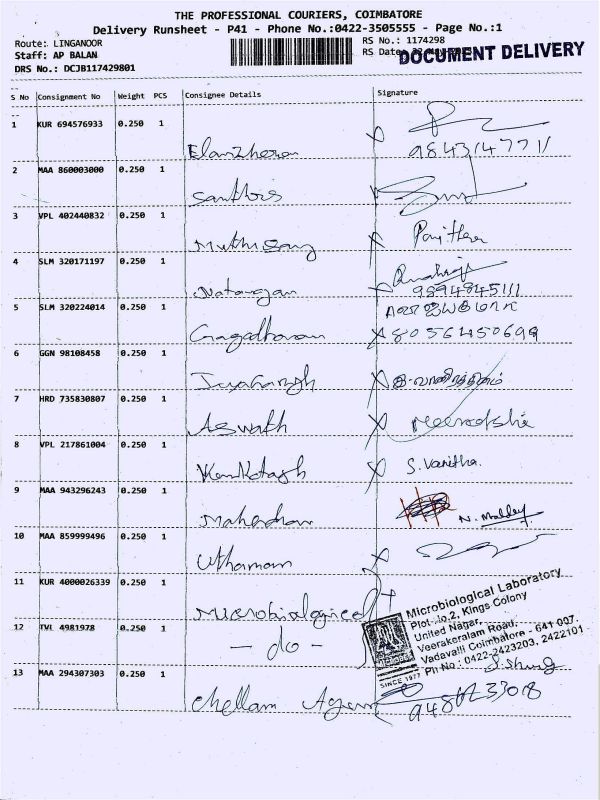 THE PROFESSIONAL COURIERS, COIMBATORE
Delivery Runsheet - P41 - Phone No.:0422-3505555 - Page No.:1
Route: LINGANOOR
RS No.: 1174298
Staff: AP BALAN
RS Date
DOCUMENT DELIVERY
DRS No.: DCJB117429801
S No Consignment No Weight PCS Consignee Details Signature
1 KUR 694576933 0.250 1
9843147711
2 MAA 860003000 0.250 1
Santhosh
3 VPL 402440832 0.250 1
4 SLM 320171197 0.250 1
Natarajan 9894845111
5 SLM 320224014 0.250 1
Gangadharan 8056450699
6 GGN 98108458 0.250 1
7 HRD 735830807 0.250 1
Aswath Meenakshi
8 VPL 217861004 0.250 1
Venkatesh S. Vanitha.
9 MAA 943296243 0.250 1
10 MAA 859999496 0.250 1
Uthaman
11 KUR 4000026339 0.250 1
Microbiological
Microbiological Laboratory
Plot No.2, Kings Colony
United Nagar,
Veerakeralam Road,
Vadavalli Coimbatore - 641 007.
Ph No : 0422-2423203, 2422101
SINCE 1977
12 TVL 4981978 0.250 1
- do -
13 MAA 294307303 0.250 1
Chellam